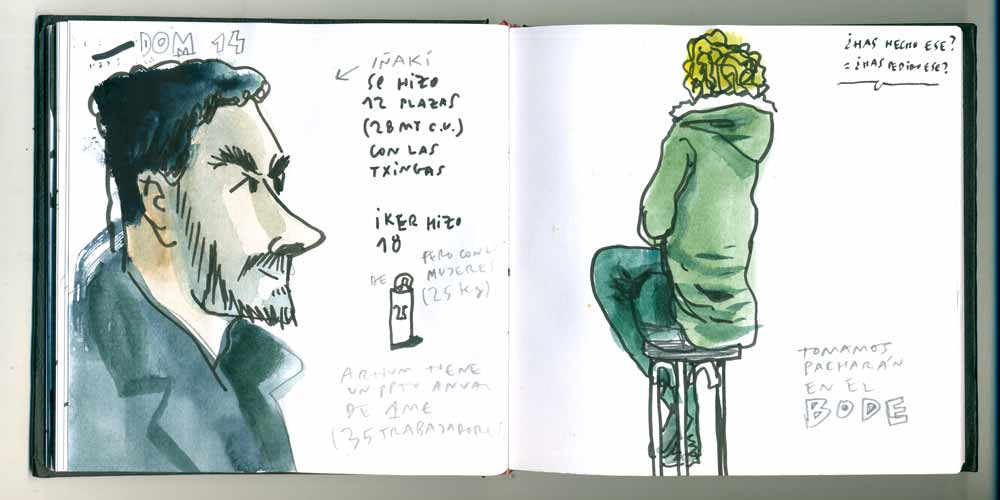 DOM 14
IÑAKÍ
SE HIZO
12 PLAZAS
(28 MT C.U.)
CON LAS
TXINGAS
IKER HIZO
18
PERO CON L
DE MUJERES
(25 Kg)
25
ARTIUM TIENE
UN PPTO ANUAL
DE 1ME
(35 TRABAJADORES
¿HAS HECHO ESE?
= ¿HAS PEDIDO ESE?
TOMAMOS
PACHARÁN
EN EL
BODE